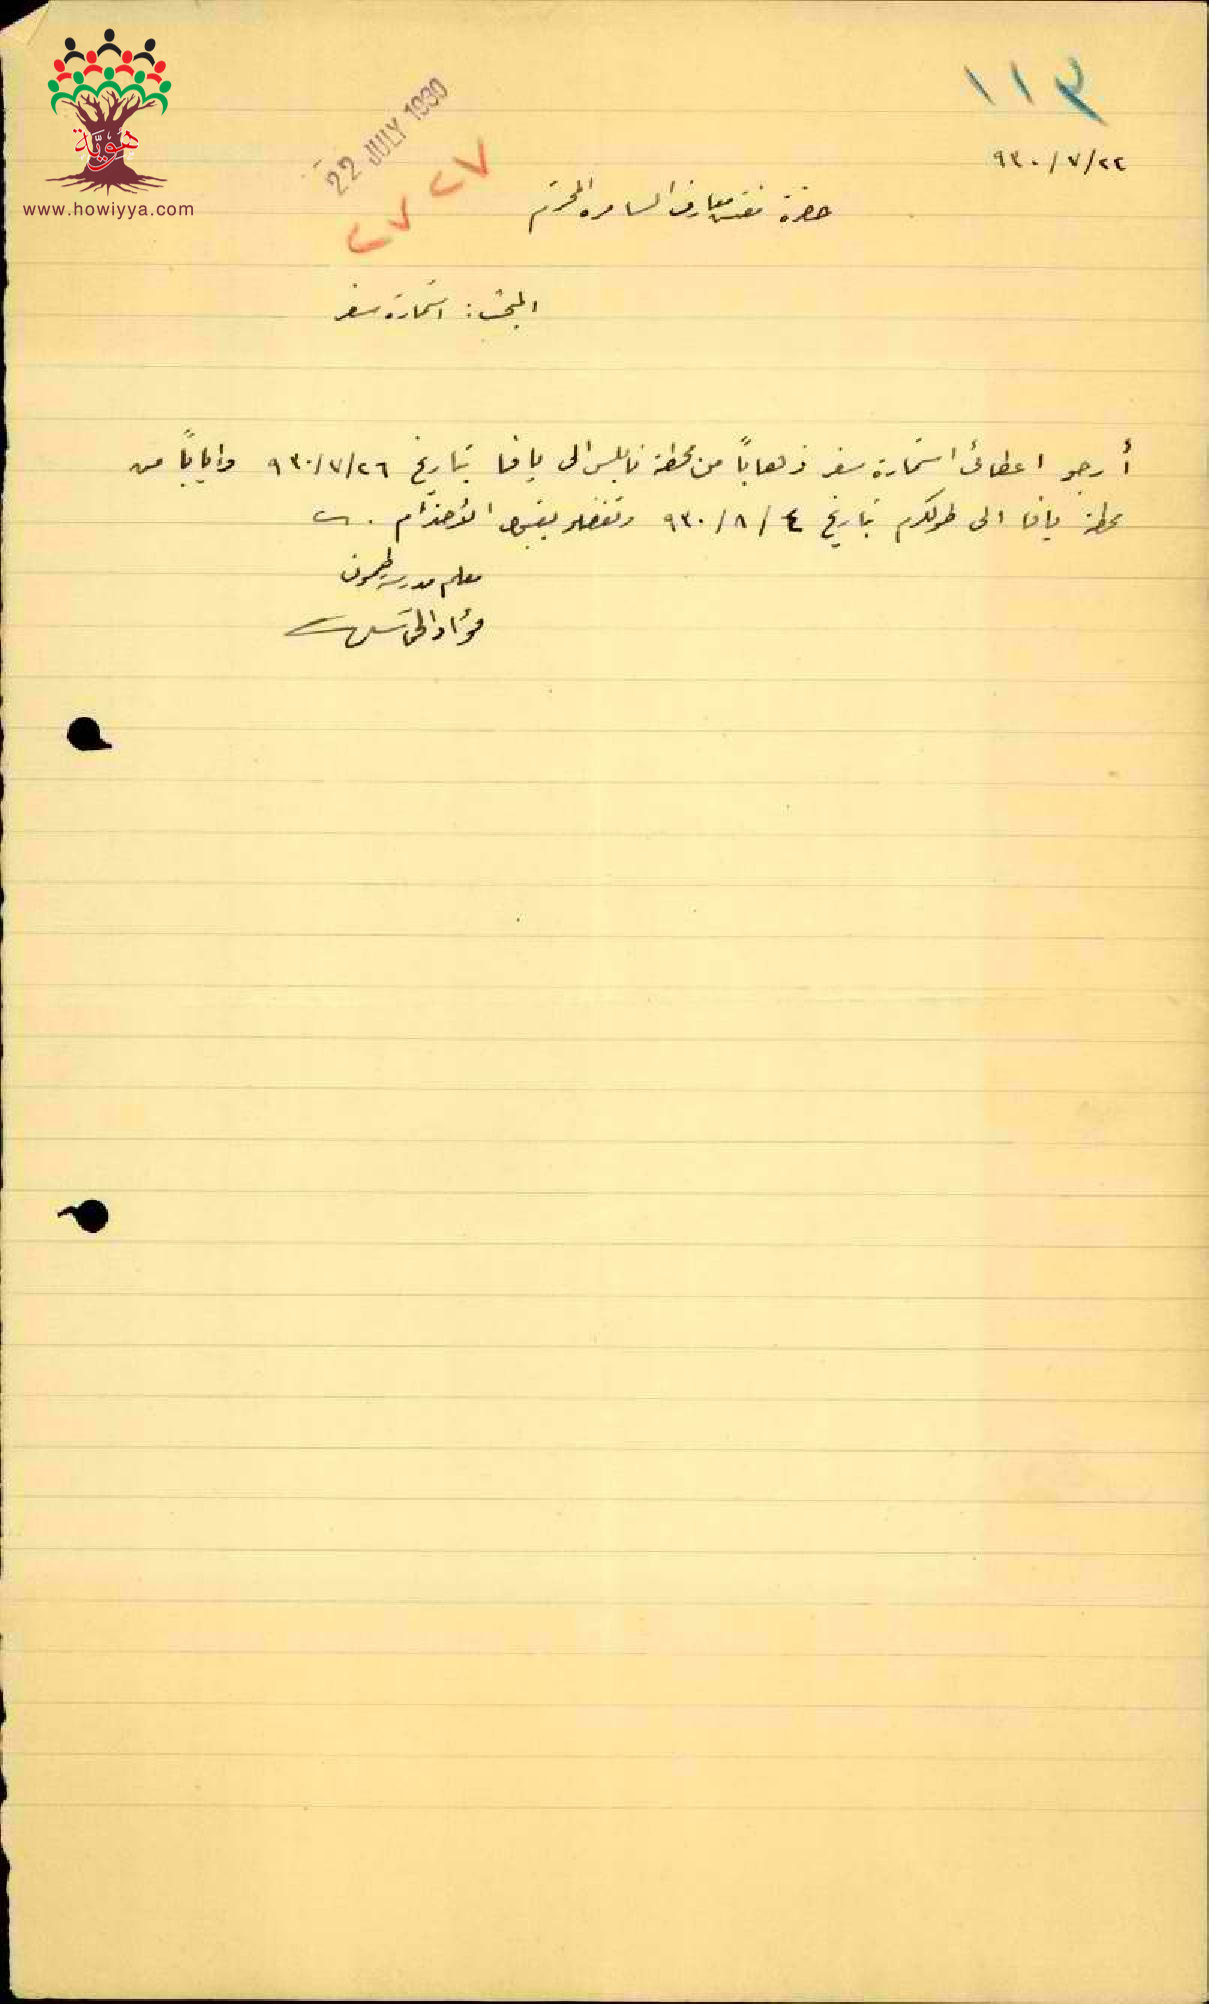 هُوِيَّة
www.howiyya.com
22 JULY 1930
١١٣
٩٣٠/٧/٢٢
حضرة مفتش معارف السامره المحترم
المبحث : استمارة سفر
أرجو اعطائي استمارة سفر ذهاباً من محطة نابلس الى يافا بتاريخ ٩٣٠/٧/٢٦ واياباً من
محطة يافا الى طولكرم بتاريخ ٩٣٠/٨/٤ وتفضلو بقبول الاحترام .
معلم مدرسة طمون
فؤاد